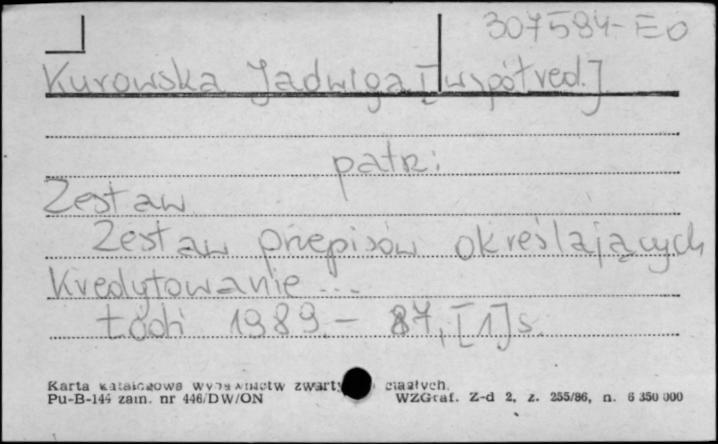 307594-EO
Kurowska Jadwiga [współred.]
patrz:
Zestaw
Zestaw przepisów określających
Kredytowanie ...
Łódź 1989.- 87, [1] s.
Karta katalogowa wydawnictw zwartych ciągłych.
Pu-B-144 zam. nr 446/DW/ON WZGraf. Z-d 2, z. 255/86, n. 6 350 000